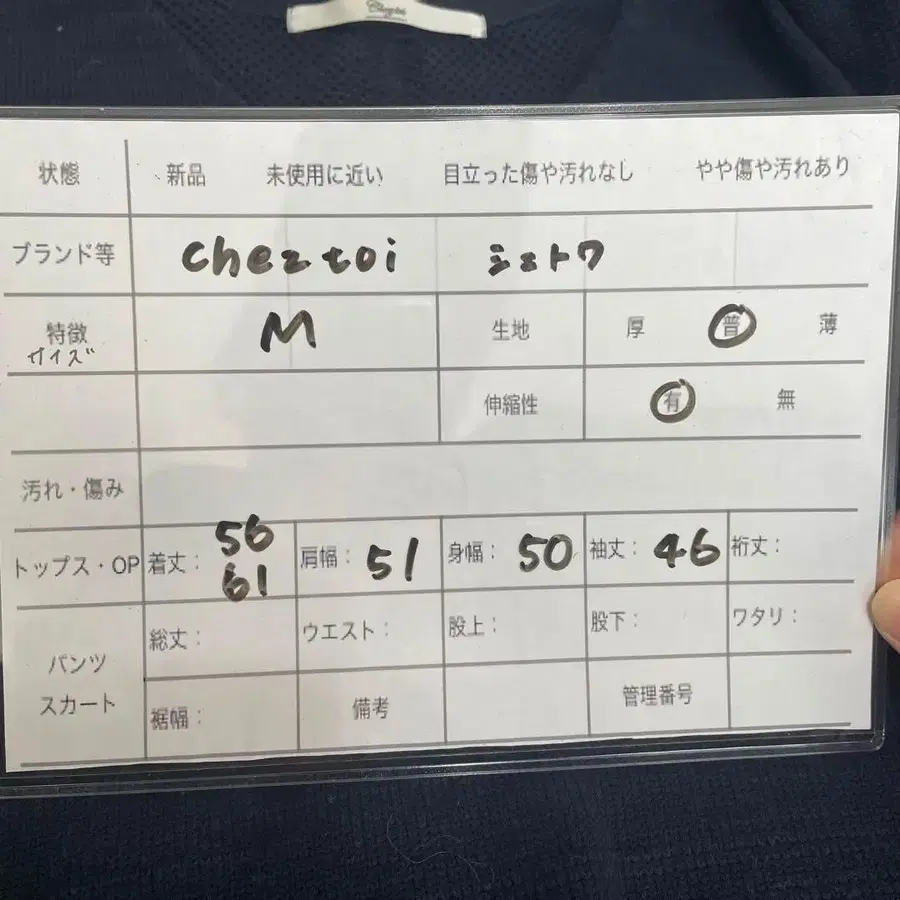 Cheztoi
状態 新品 未使用に近い 目立った傷や汚れなし やや傷や汚れあり
ブランド等 cheztoi シェトワ
特徴 M 生地 厚 普 薄
サイズ
伸縮性 有 無
汚れ・傷み
トップス・OP 着丈: 56 肩幅: 51 身幅: 50 袖丈: 46 裄丈:
61
パンツ 総丈: ウエスト: 股上: 股下: ワタリ:
スカート 裾幅: 備考 管理番号